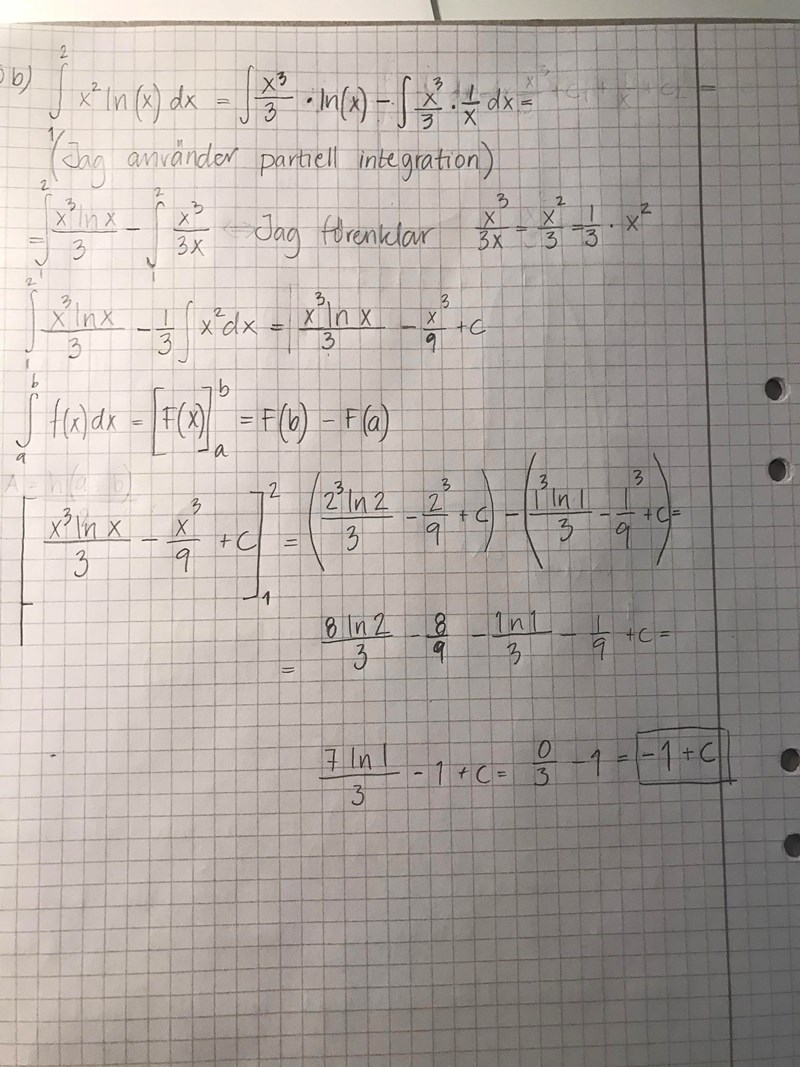 b) ∫₁² x² ln(x) dx = ∫ x³/3 · ln(x) − ∫ x³/3 · 1/x dx = =
(Jag använder partiell integration)
= ∫₁² x³ ln x/3 − ∫₁² x³/3x Jag förenklar x³/3x = x²/3 = 1/3 · x²
∫₁² x³ ln x/3 − 1/3 ∫ x² dx = x³ ln x/3 − x³/9 + C
∫ₐᵇ f(x) dx = [F(x)]ₐᵇ = F(b) − F(a)
[x³ ln x/3 − x³/9 + C]₁² = (2³ ln 2/3 − 2³/9 + C) − (1³ ln 1/3 − 1³/9 + C) =
= 8 ln 2/3 − 8/9 − 1 ln 1/3 − 1/9 + C =
7 ln 1/3 − 1 + C = 0/3 − 1 = −1 + C